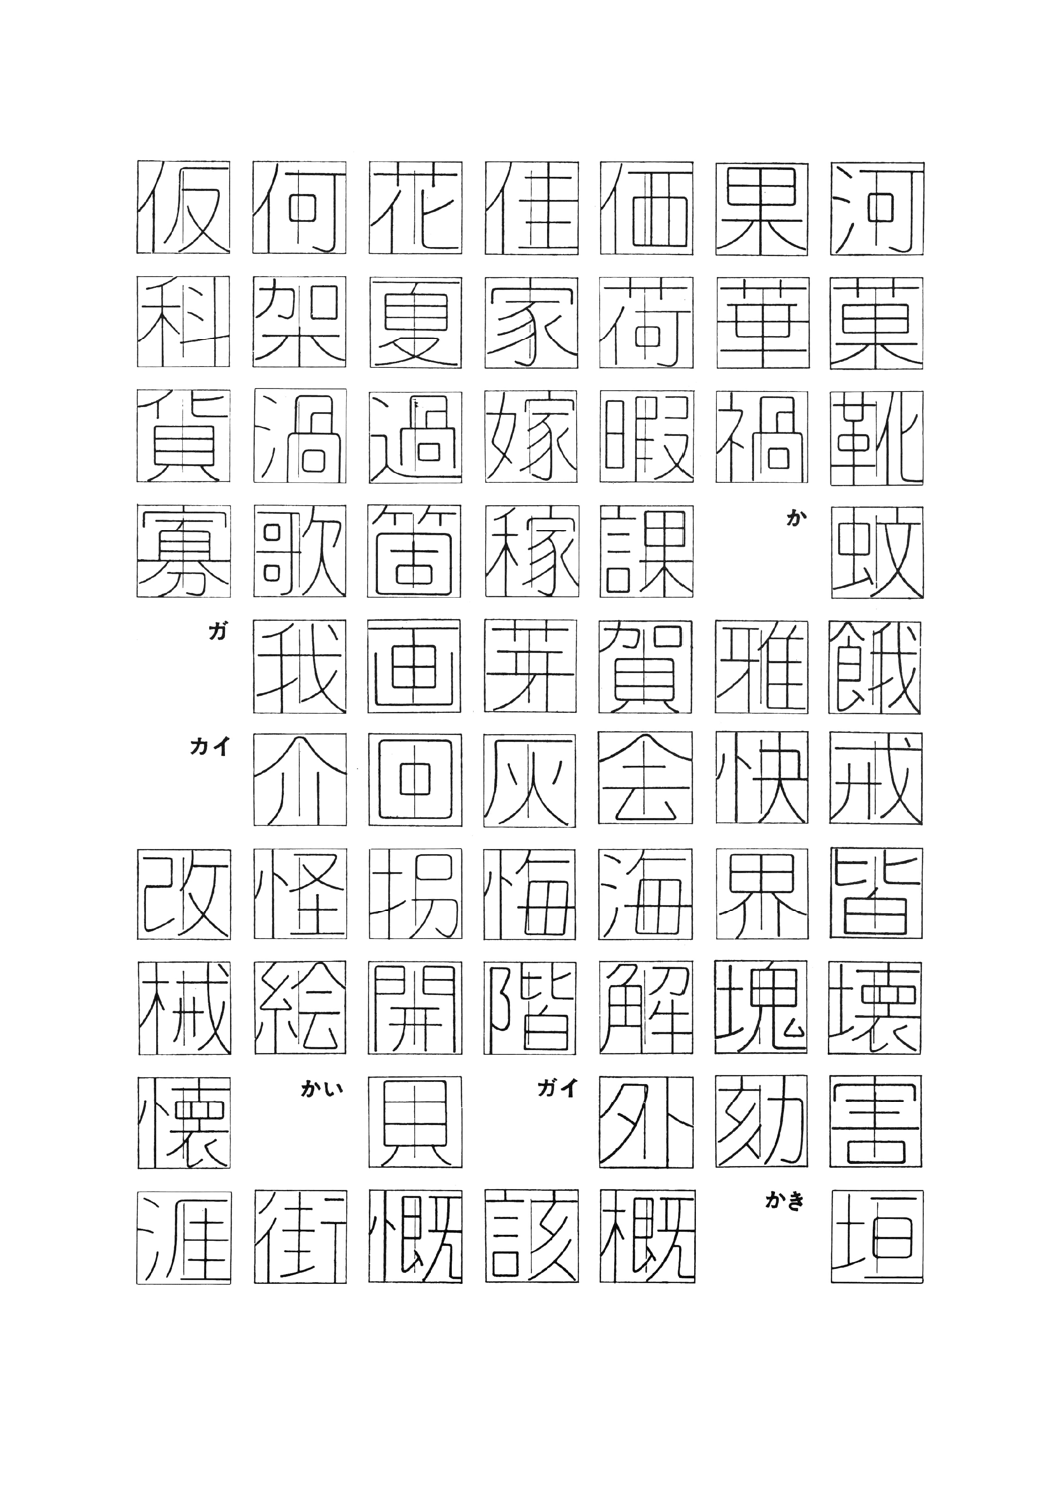 仮何花佳価果河
科架夏家荷華菓
貨渦過嫁暇禍靴
寡歌箇稼課 か 蚊
ガ 我画芽賀雅餓
カイ 介回灰会快戒
改怪拐悔海界皆
械絵開階解塊壊
懐 かい 貝 ガイ 外劾害
涯街慨該概 かき 垣